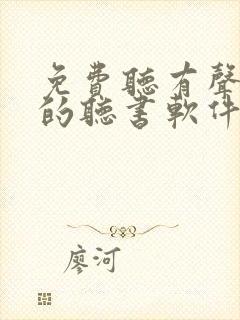 免費聽有聲
的聽書軟件
廖河